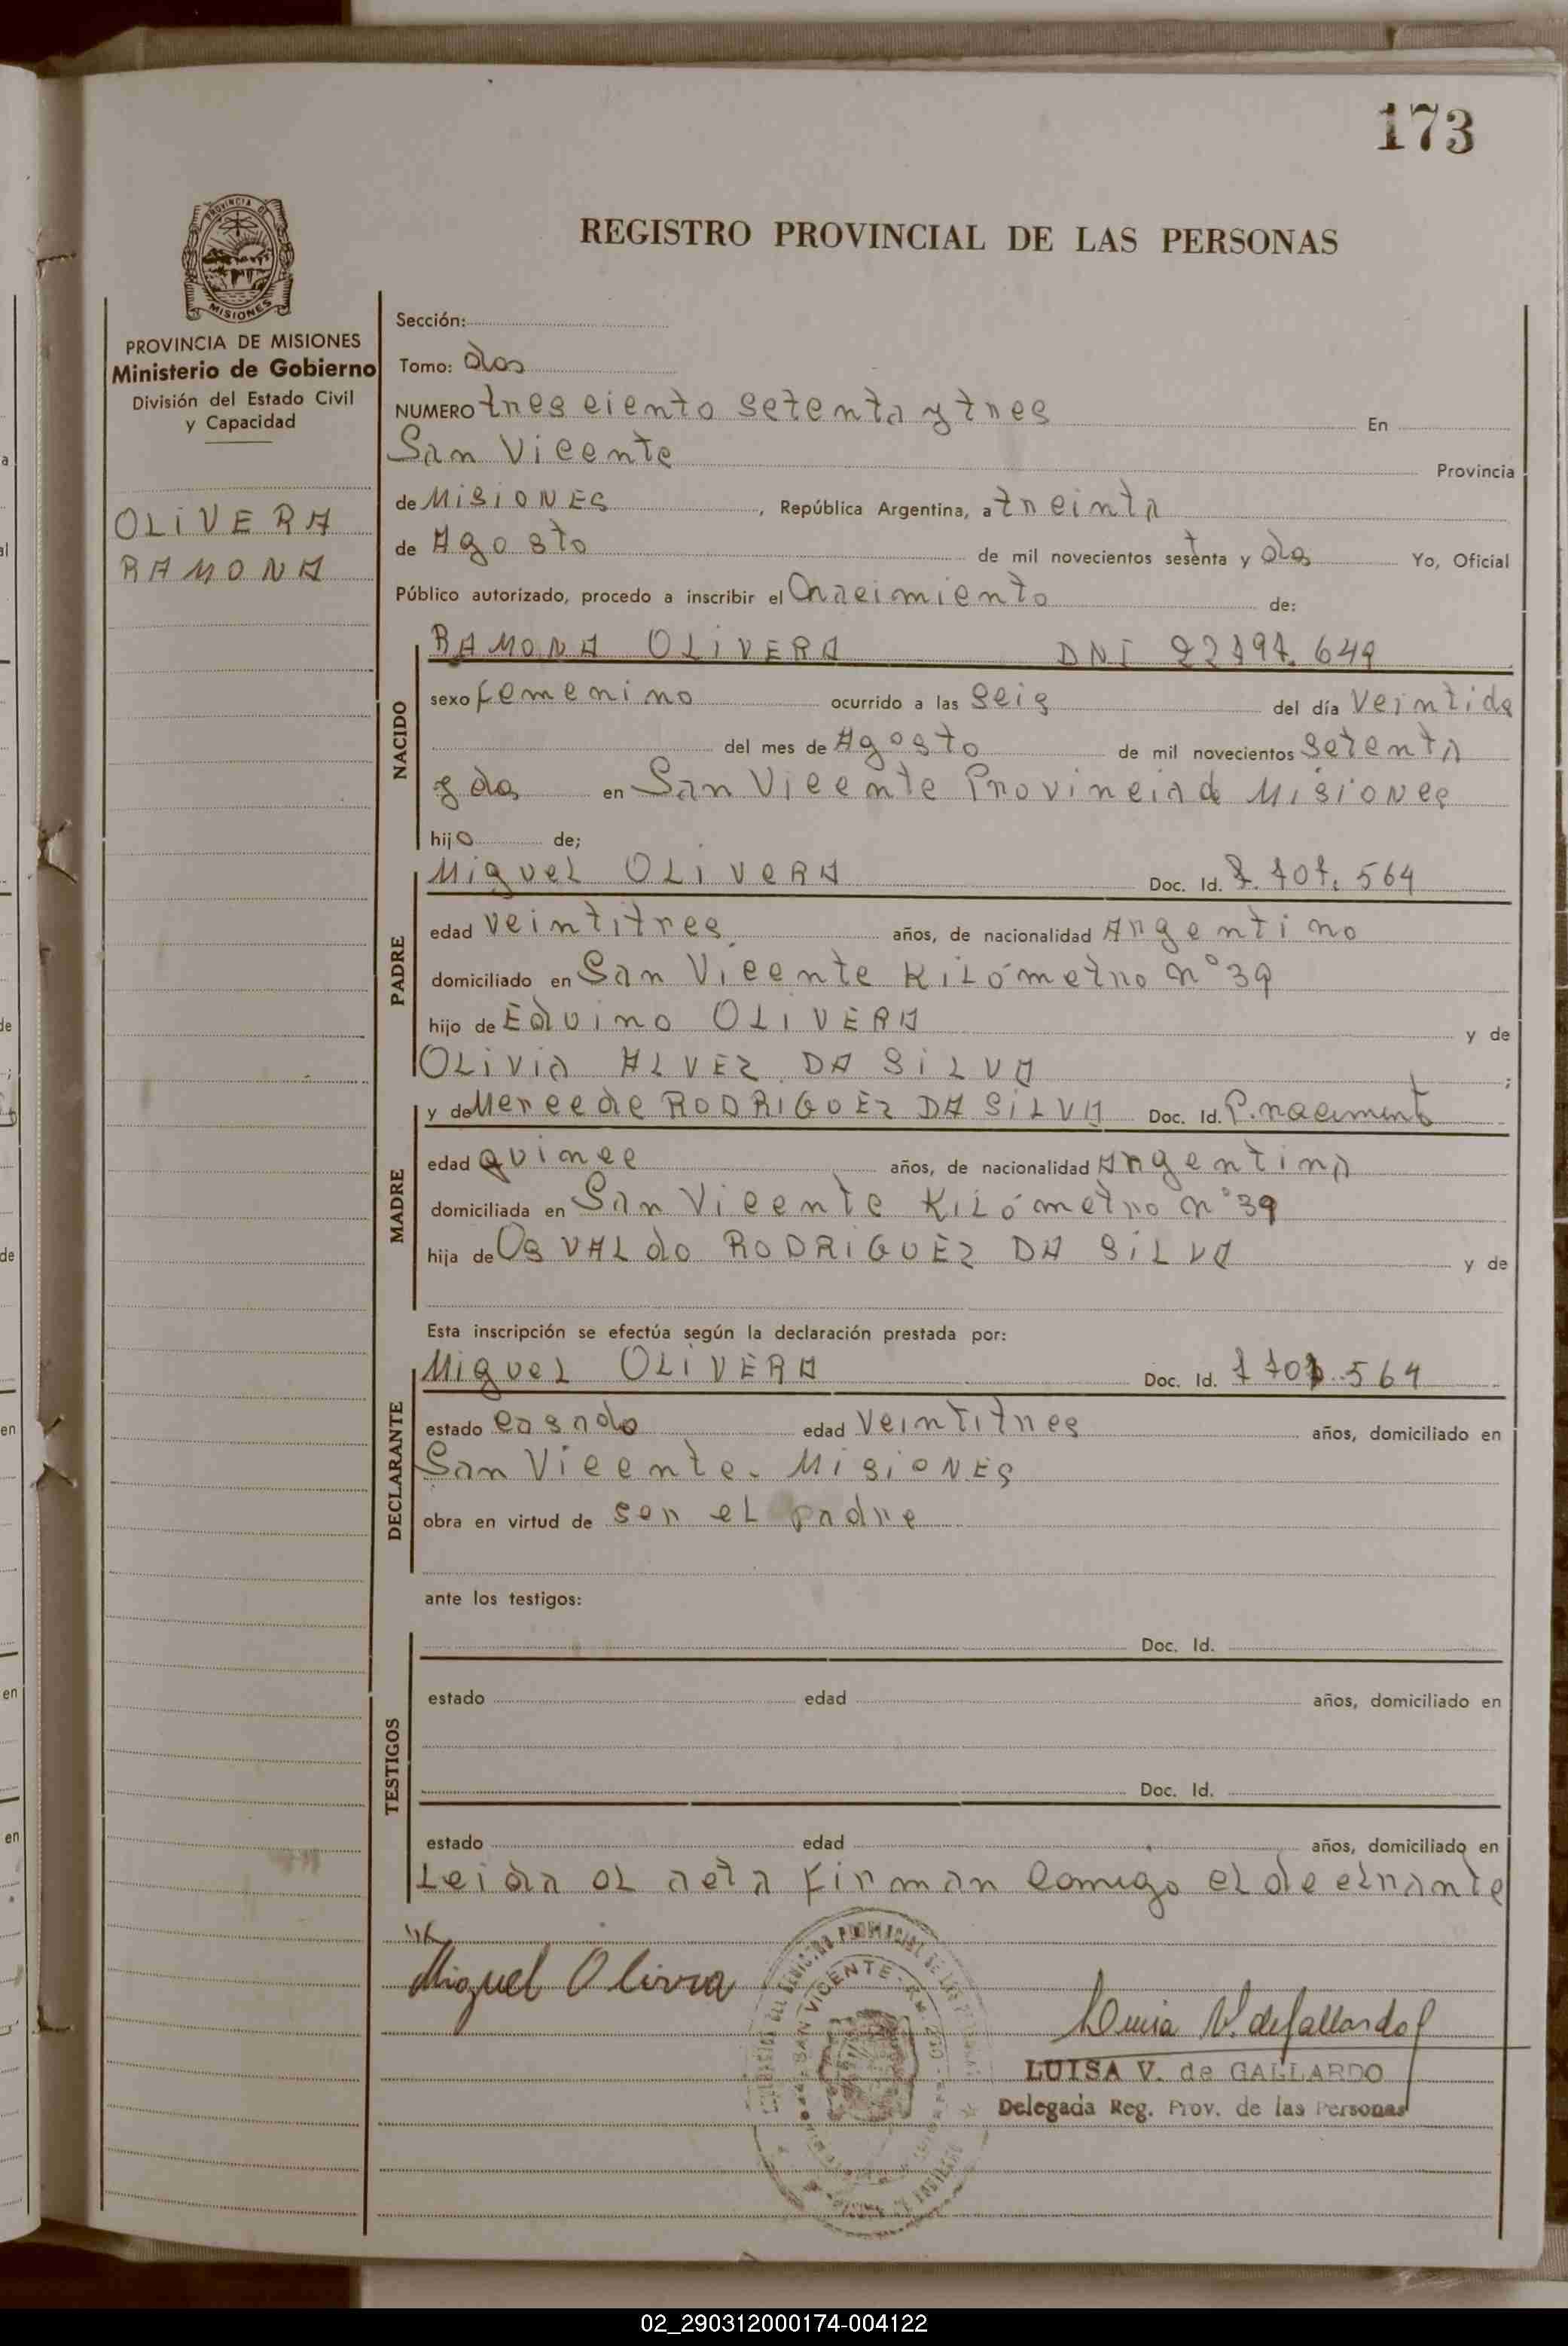 173
REGISTRO PROVINCIAL DE LAS PERSONAS
PROVINCIA DE
MISIONES
PROVINCIA DE MISIONES
Ministerio de Gobierno
División del Estado Civil
y Capacidad
OLiVERA
RAMONA
Sección:
Tomo: dos
NUMERO tres ciento setenta y tres En
San Vicente Provincia
de MISIONES , República Argentina, a treinta
de Agosto de mil novecientos setenta y dos Yo, Oficial
Público autorizado, procedo a inscribir el nacimiento de:
RAMONA OLIVERA DNI
NACIDO
sexo femenino ocurrido a las seis del día veintidos
del mes de Agosto de mil novecientos setenta
y dos en San Vicente Provincia de Misiones
hijo de;
PADRE
Miguel OLIVERA Doc. Id.
edad veintitres años, de nacionalidad Argentino
domiciliado en San Vicente Kilómetro n° 39
hijo de Eduino OLIVERA y de
OLivia ALVEZ DA SILVA ;
MADRE
y de Mercede RODRIGUEZ DA SILVA Doc. Id. P. nacimento
edad quince años, de nacionalidad Argentina
domiciliada en San Vicente Kilómetro n° 39
hija de OsVALdo RODRIGUEZ DA SILVA y de
Esta inscripción se efectúa según la declaración prestada por:
DECLARANTE
Miguel OLIVERA Doc. Id.
estado casado edad veintitres años, domiciliado en
San Vicente. MISIONES
obra en virtud de ser el padre
ante los testigos:
TESTIGOS
Doc. Id.
estado edad años, domiciliado en
Doc. Id.
estado edad años, domiciliado en
Leida el acta firman comigo el declarante
Miguel Olivera
Luisa V. de Gallardo
LUISA V. de GALLARDO
Delegada Reg. Prov. de las Personas
SAN VICENTE
02_290312000174-004122